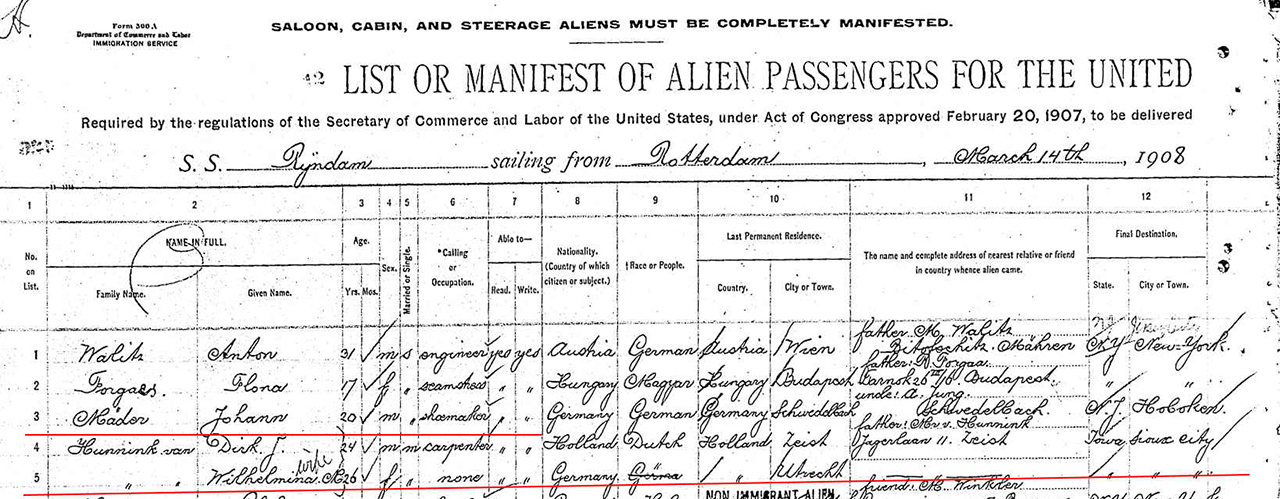 H.
Form 500 A
Department of Commerce and Labor
IMMIGRATION SERVICE
SALOON, CABIN, AND STEERAGE ALIENS MUST BE COMPLETELY MANIFESTED.
42 LIST OR MANIFEST OF ALIEN PASSENGERS FOR THE UNITED
Required by the regulations of the Secretary of Commerce and Labor of the United States, under Act of Congress approved February 20, 1907, to be delivered
S. S. Ryndam sailing from Rotterdam, March 14th, 1908
1 2 3 4 5 6 7 8 9 10 11 12
No. on List. NAME IN FULL. Family Name. Given Name. Age. Yrs. Mos. Sex. Married or Single. *Calling or Occupation. Able to— Read. Write. Nationality. (Country of which citizen or subject.) †Race or People. Last Permanent Residence. Country. City or Town. The name and complete address of nearest relative or friend in country whence alien came. Final Destination. State. City or Town.
1 Walitz Anton 31 m s engineer yes yes Austria German Austria Wien father: M. Walitz Mähren N.Y. New-York.
2 Forgaes. Ilona 17 f " seamstress " " Hungary Magyar Hungary Budapest father: R. Forgaa. Budapest. " "
3 Mäder Johann 20 m " shoemaker " " Germany German Germany Schwedelbach uncle: A. Jung. Schwedelbach. N.J. Hoboken.
4 Hunnink van Dirk J. 24 m m carpenter " " Holland Dutch Holland Zeist father: Mr. v. Hunnink Jagerlaan 11. Zeist Iowa Sioux City
5 " " Wilhelmina wife 26 f " none " " Germany " Utrecht " " "
friend: M. Winkler
NON IMMIGRANT ALIEN